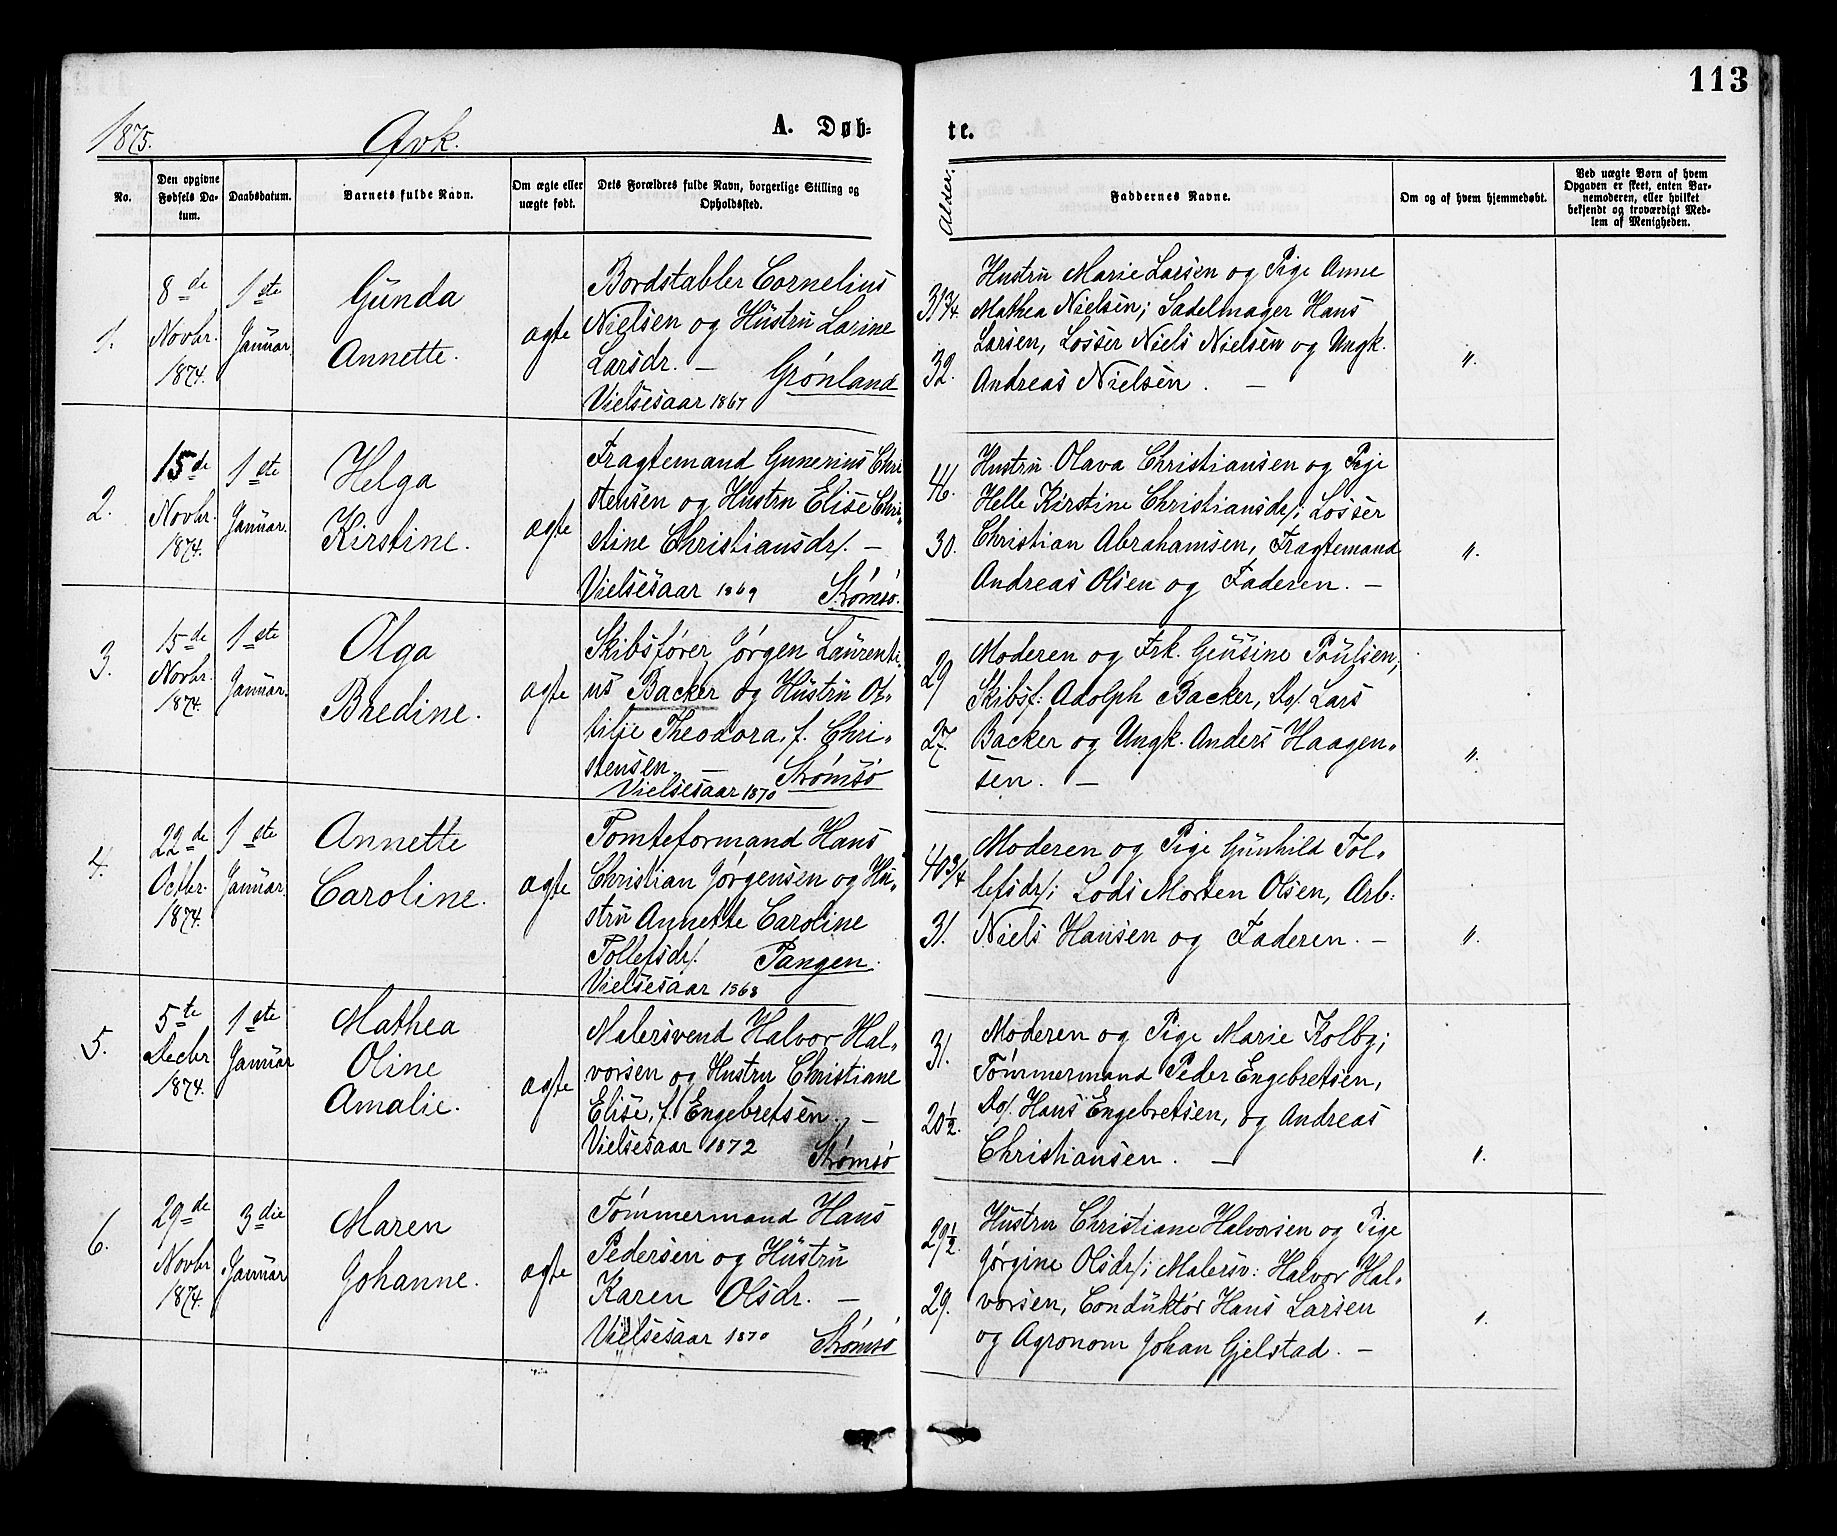 113
1875.
Qvk.
A. Døb-
te.
No.
Den opgivne
Fødsels Da-
tum.
Daabsdatum.
Barnets fulde Navn.
Om ægte eller
uægte født.
Dets Forældres fulde Navn, borgerlige Stilling og
Opholdssted.
Alder.
Faddernes Navne.
Om og af hvem hjemmedøbt.
Ved uægte Børn af hvem
Opgaven er skeet, enten Bar-
nemoderen, eller hvilket
bekjendt og troværdigt Med-
lem af Menigheden.
1.
8de
Novbr.
1874.
1ste
Januar.
Gunda
Annette.
ægte
Bordstabler Cornelius
Nielsen og Hustru Larine
Larsdr. —
Grønland
Vielsesaar 1867
31 3/4
32.
Hustru Marie Larsen og Pige Anne
Mathea Nielsen; Sadelmager Hans
Larsen, Losser Niels Nielsen og Ungk.
Andreas Nielsen. —
〃.
2.
15de
Novbr.
1874.
1ste
Januar.
Helga
Kirstine.
ægte
Fragtemand Gunerius Chri
stensen og Hustru Elise Chri„
stine Christiansdr/. —
Vielsesaar 1869
Strømsø.
46.
30.
Hustru Olava Christiansen og Pige
Helle Kirstine Christiansdr/; Losser
Christian Abrahamsen, Fragtemand
Andreas Olsen og Faderen. —
〃.
3.
15de
Novbr.
1874.
1ste
Januar.
Olga
Bredine.
ægte
Skibsfører Jørgen Laurenti„
us Backer og Hustru Ot„
tilie Theodora, f. Chri„
stensen. —
Strømsø
Vielsesaar 1870
29
27.
Moderen og Frk. Geusine Poulsen;
Skibsf: Adolph Backer, Do/. Lars
Backer og Ungk. Anders Haagen„
sen. —
〃.
4.
22de
Octbr.
1874.
1ste
Januar.
Annette
Caroline.
ægte
Tomteformand Hans
Christian Jørgensen og Hu„
stru Annette Caroline
Tollefsdr/.
Tangen.
Vielsesaar 1868
40 3/4
31.
Moderen og Pige Gunhild Tol„
lefsdr/; Lods Morten Olsen, Arb:
Niels Hansen og Faderen. —
〃.
5.
5te
Decbr
1874.
1ste
Januar
Mathea
Oline
Amalie.
ægte
Malersvend Halvor Hal„
vorsen og Hustru Christiane
Elise, f. Engebretsen. —
Vielsesaar 1872
Strømsø
31.
20 1/2.
Moderen og Pige Marie Kolby;
Tømmermand Peder Engebretsen,
Do/. Hans Engebretsen, og Andreas
Christiansen. —
〃.
6.
29de
Novbr
1874.
3die
Januar
Maren
Johanne.
ægte
Tømmermand Hans
Pedersen og Hustru
Karen Olsdr. —
Vielsesaar 1870
Strømsø
29 1/2.
29.
Hustru Christiane Halvorsen og Pige
Jørgine Olsdr/; Malersv: Halvor Hal„
vorsen, Conduktør Hans Larsen
og Agronom Johan Gjelstad. —
〃.